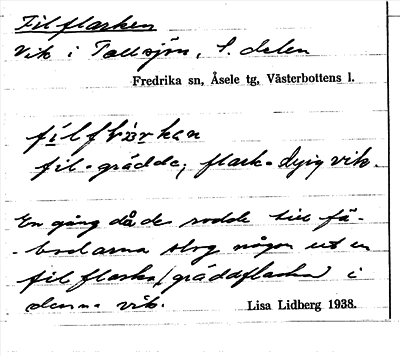 Filflarken
Vik i Tallsjön, S. delen
Fredrika sn, Åsele tg, Västerbottens l.
fil-grädde; flark-dyig vik.
En gång då de rodde till fä-
-bodarna slog någon ut en
filflaska (gräddflaska) i
denna vik.
Lisa Lidberg 1938.